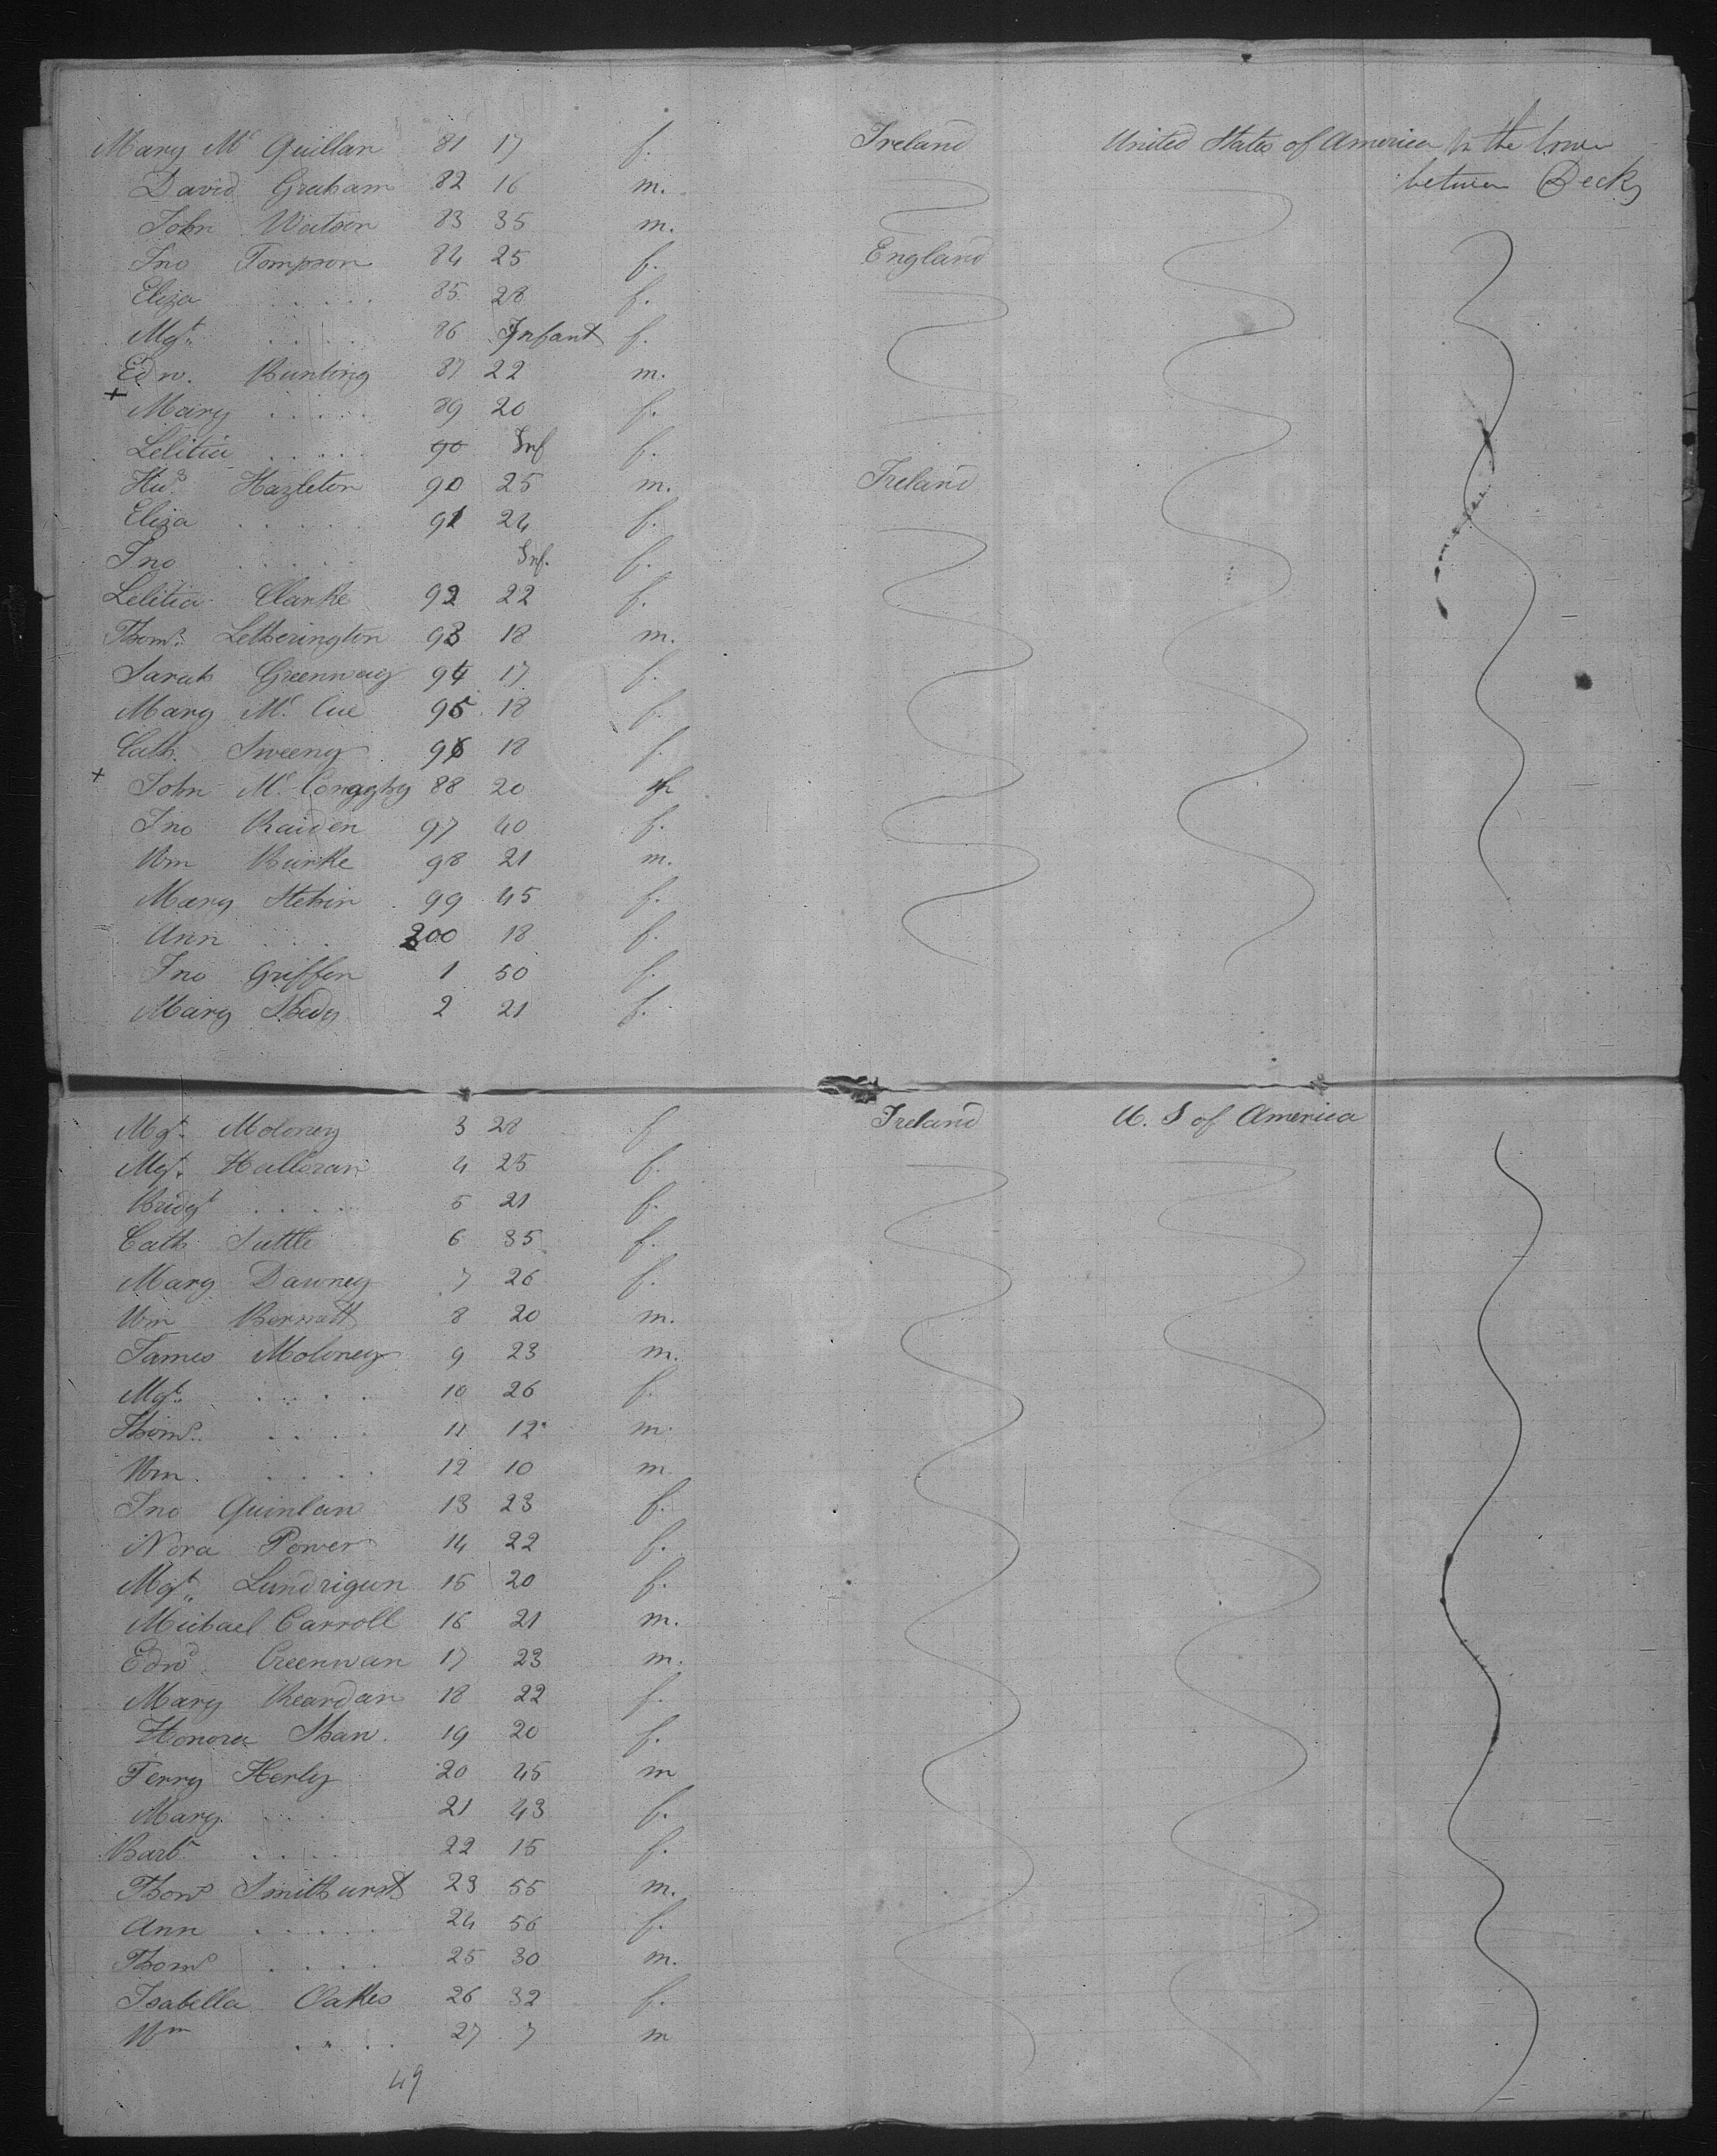 Mary Mc Quillan 81 17 f. Ireland United States of America In the lower
between Decks
David Graham 82 16 m.
John Watson 83 35 m.
Jno Tompson 84 25 f. England
Eliza . . . . . 85 28 f.
Mgt. . . . . 86 Infant f.
Edw. Bunting 87 22 m.
+ Mary . . . . . 89 20 f.
Letitia . . . . . 90 Inf f.
Hazleton 90 25 m. Ireland
Eliza . . . . . 91 24 f.
Jno . . . . . Inf. f.
Letitia Clarke 92 22 f.
Thoms. Letherington 93 18 m.
Sarah Greenway 94 17 f.
Mary Mc. Cue 95 18 f.
Cath. Sweeny 96 18 f.
+ John Mc. Conaghy 88 20
Jno Raiden 97 40 f.
Wm Burke 98 21 m.
Mary Stehin 99 45 f.
Ann . . . 200 18 f.
Jno Griffin 1 50 f.
Mary Shedy 2 21 f.
Mgt. Moloney 3 28 f Ireland U. S of America
Mgt. Halloran 4 25 f.
Bridgt . . . . 5 21 f.
Cath Suttle 6 35 f.
Mary Dawney 7 26 f.
Wm Bernatt 8 20 m.
James Moloney 9 23 m.
Mgt. . . . . 10 26 f.
Thoms. . . . . 11 12 m.
Wm. . . . . 12 10 m
Jno Quinlan 13 23 f.
Nora Power 14 22 f.
Mgt. Lundrigun 15 20 f.
Michael Carroll 16 21 m.
Edwd. Creenwan 17 23 m.
Mary Reardan 18 22 f.
Honora Shan. 19 20 f.
Terry Herly 20 45 m
Mary. . . . 21 43 f.
Barb. . . . . 22 15 f.
Thoms Smithurst 23 55 m.
Ann . . . . . 24 56 f.
Thoms . . . . . 25 30 m.
Isabella Oakes 26 32 f.
Wm . . . . 27 7 m
49